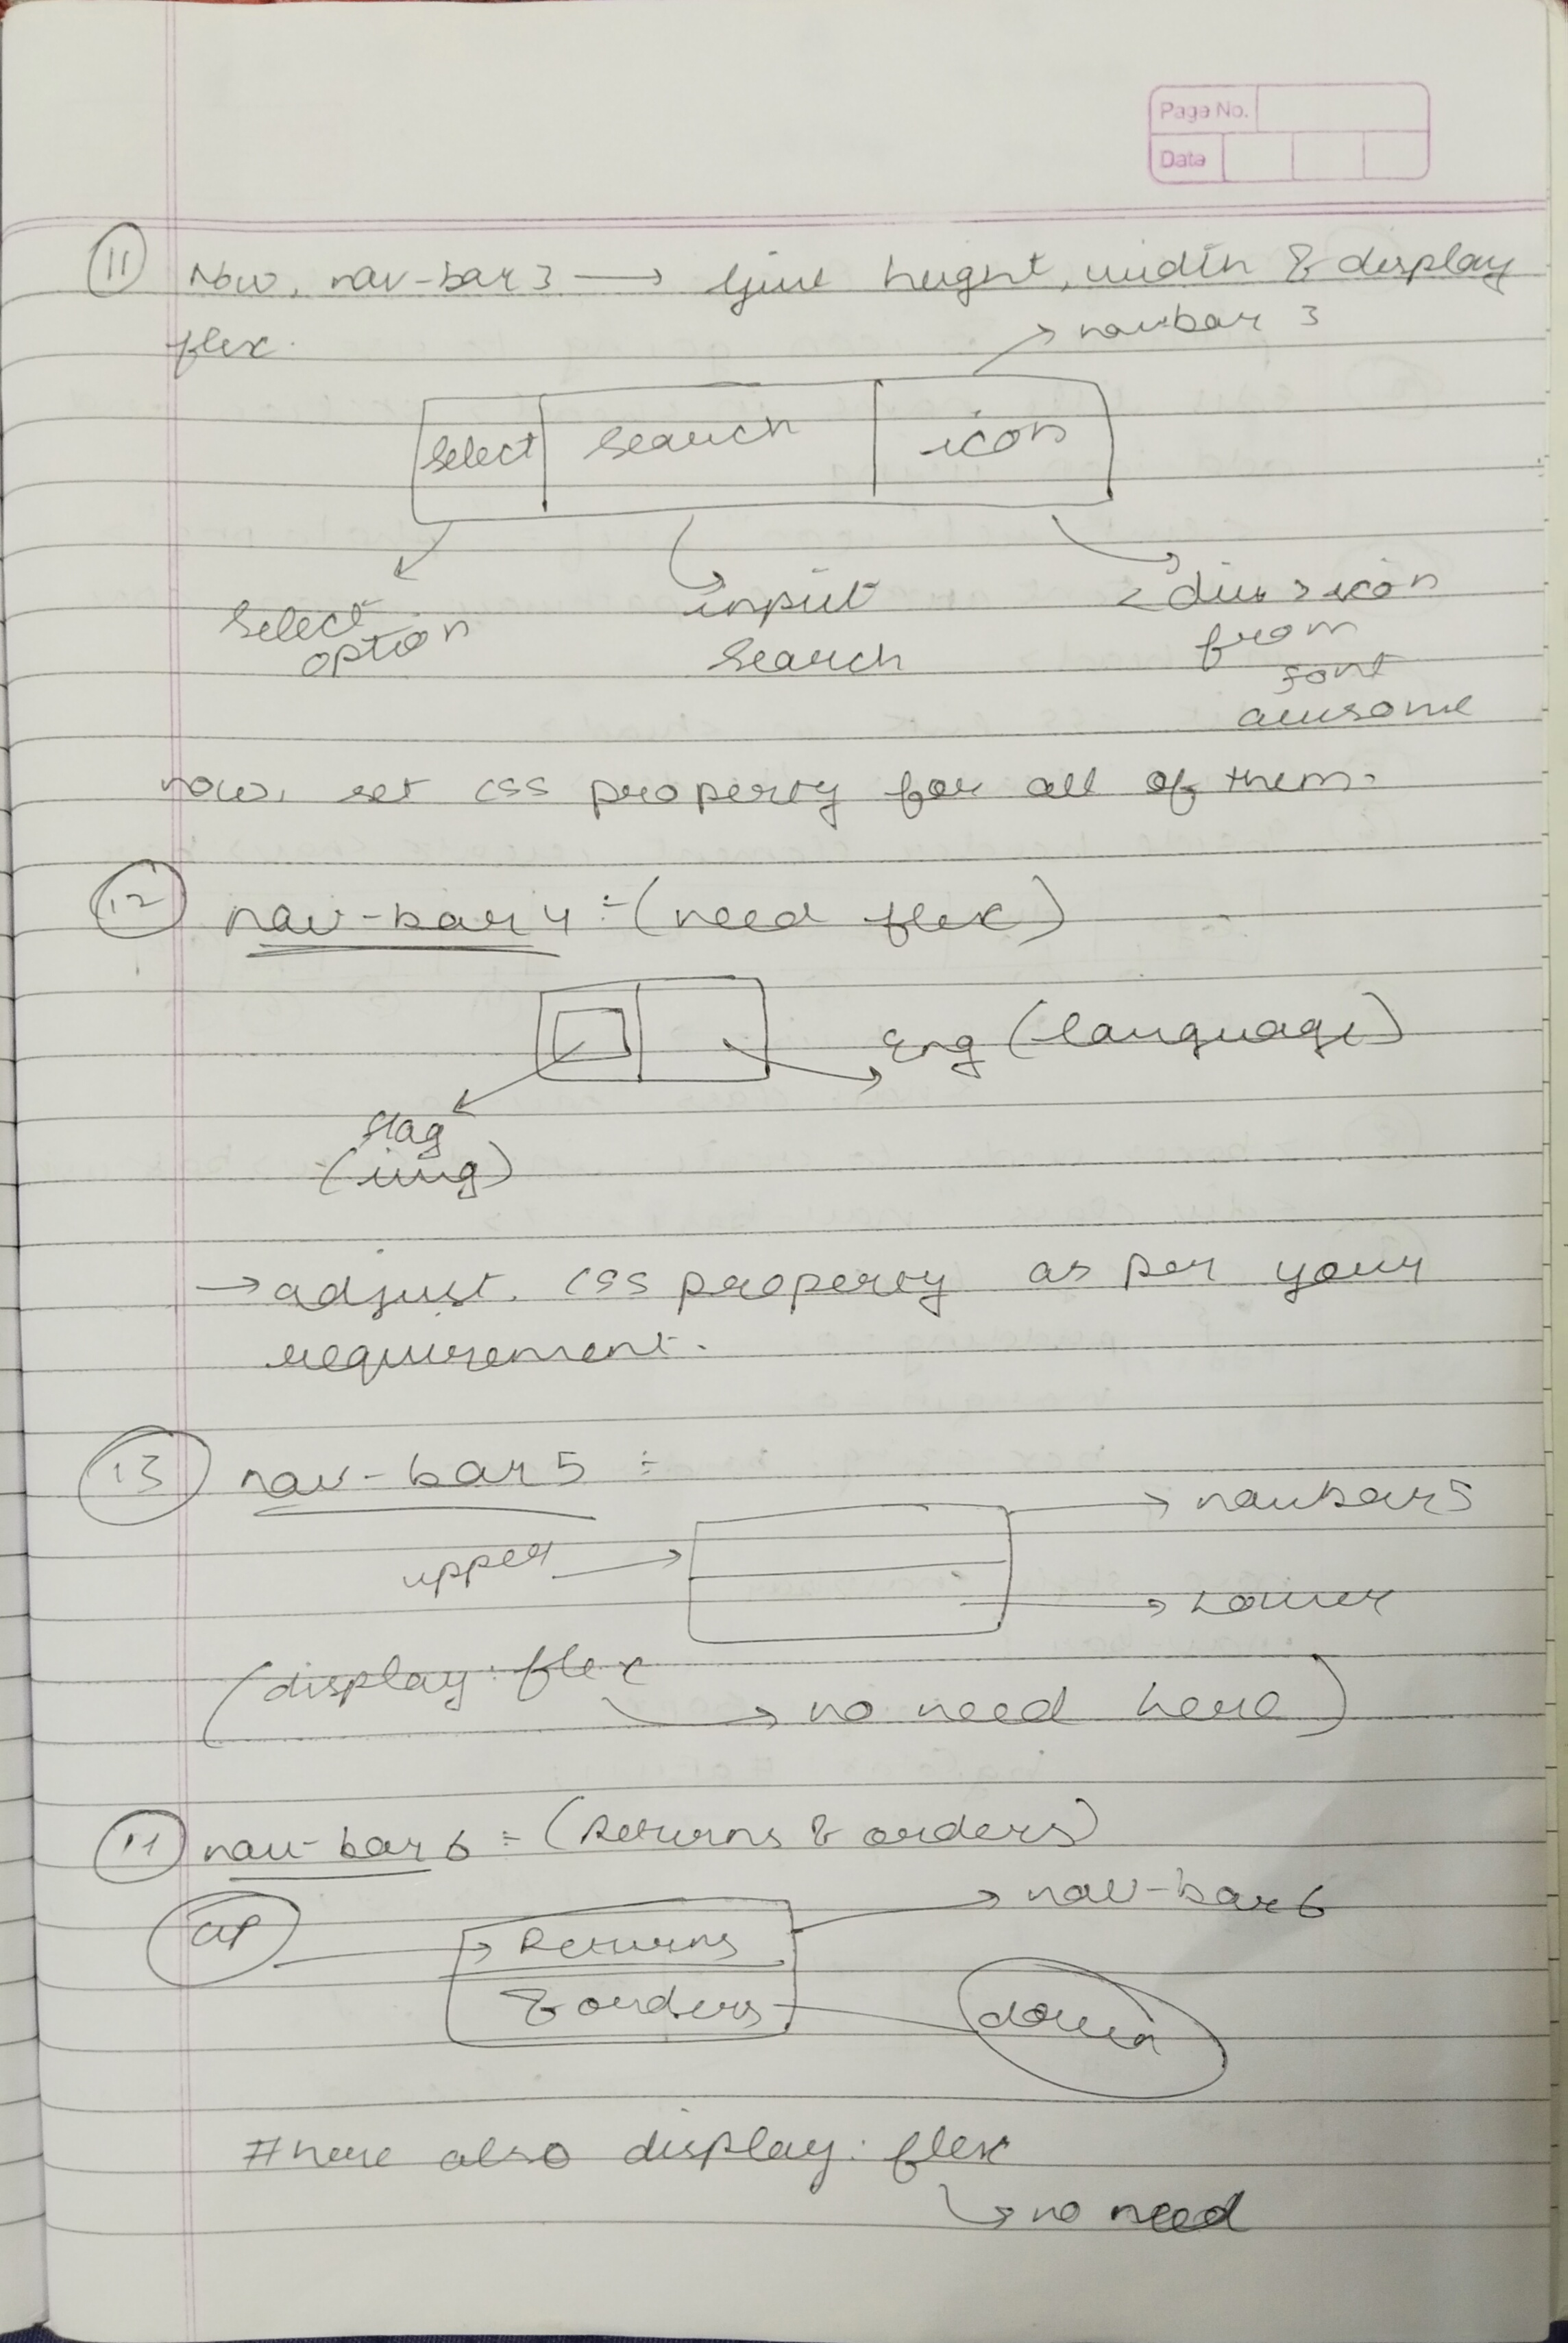 Page No.
Data
11 Now, nav-bar 3 → Give height, width & display
flex.
→ navbar 3
Select search icon
Select option
input search
<div> icon from font awesome
now, set css property for all of them.
12 nav-bar 4 :- (need flex)
Eng (language)
flag
(img)
→ adjust. css property as per your
requirement.
13 nav-bar 5 :-
→ navbar 5
upper →
→ Lower
(display: flex
→ no need here)
11 nav-bar 6 :- (Returns & orders)
→ nav-bar 6
up → Returns
& orders down
# here also display: flex
→ no need